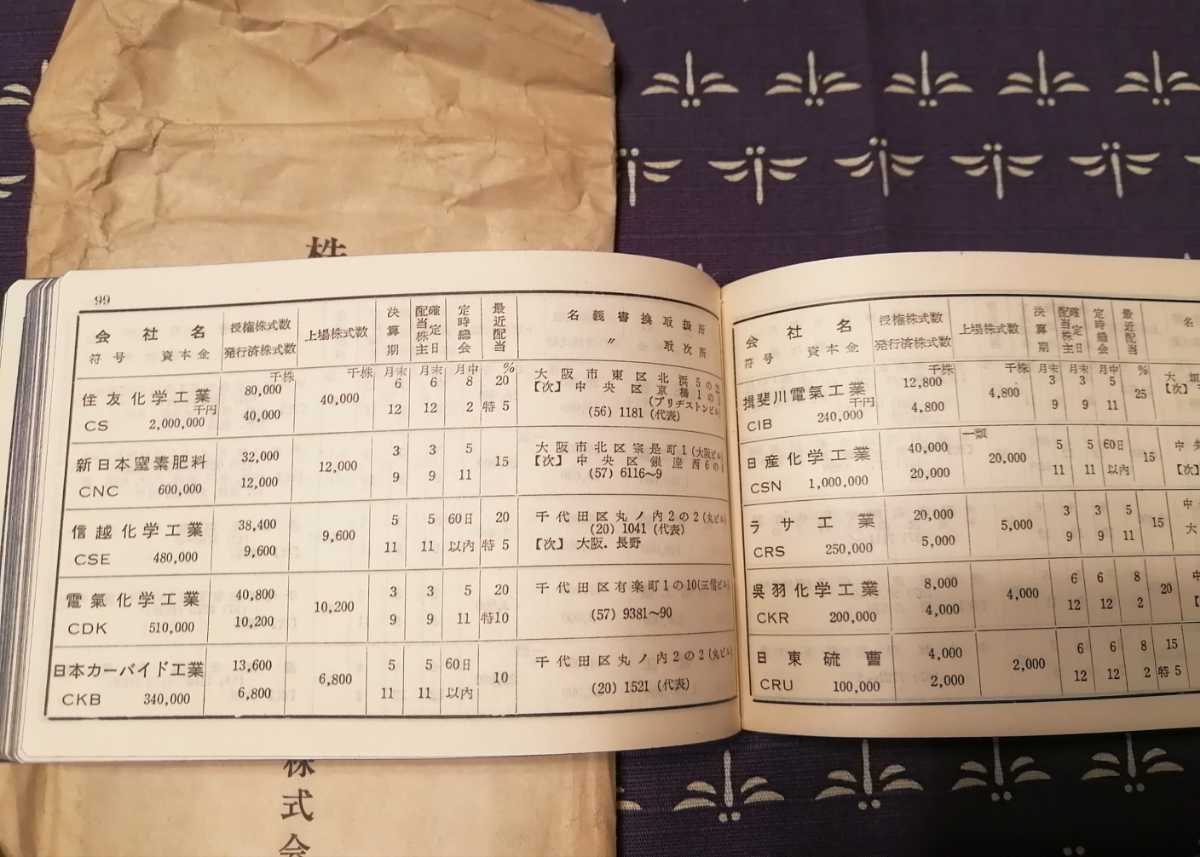 株
99
会社名 授権株式数 上場株式数 決算期 配当株主確定日 定時総会 最近配当 名義書換取扱所
符号 資本金 発行済株式数 〃 取次所
千株 千株 月末 月末 月中 %
住友化学工業 80,000 40,000 6 6 8 20 大阪市東区北浜5の
千円 【次】中央区京橋1の1
CS 2,000,000 40,000 12 12 2 特5 (ブリヂストンビル)
(56) 1181 (代表)
新日本窒素肥料 32,000 12,000 3 3 5 15 大阪市北区宗是町1(大阪ビル
CNC 600,000 12,000 9 9 11 【次】中央区銀座西6の
(57) 6116~9
信越化学工業 38,400 9,600 5 5 60日 20 千代田区丸ノ内2の2(丸ビル
CSE 480,000 9,600 11 11 以内 特5 (20) 1041 (代表)
【次】大阪.長野
電氣化学工業 40,800 10,200 3 3 5 20 千代田区有楽町1の10(三信ビル
CDK 510,000 10,200 9 9 11 特10 (57) 9381~90
日本カーバイド工業 13,600 6,800 5 5 60日 10 千代田区丸ノ内2の2(丸ビル
CKB 340,000 6,800 11 11 以内 (20) 1521 (代表)
会社名 授権株式数 上場株式数 決算期 配当株主確定日 定時総会 最近配当 名
符号 資本金 発行済株式数
千株 千株 月末 月末 月中 %
揖斐川電氣工業 12,800 4,800 3 3 5 25 大
千円 【次】
CIB 240,000 4,800 9 9 11
日産化学工業 40,000 一類 20,000 5 5 60日 15 中央
CSN 1,000,000 20,000 11 11 以内 【次】
ラサ工業 20,000 5,000 3 3 5 15 中
CRS 250,000 5,000 9 9 11
呉羽化学工業 8,000 4,000 6 6 8 20 中
CKR 200,000 4,000 12 12 2
日東硫曹 4,000 2,000 6 6 8 15
CRU 100,000 2,000 12 12 2 特5
株式会